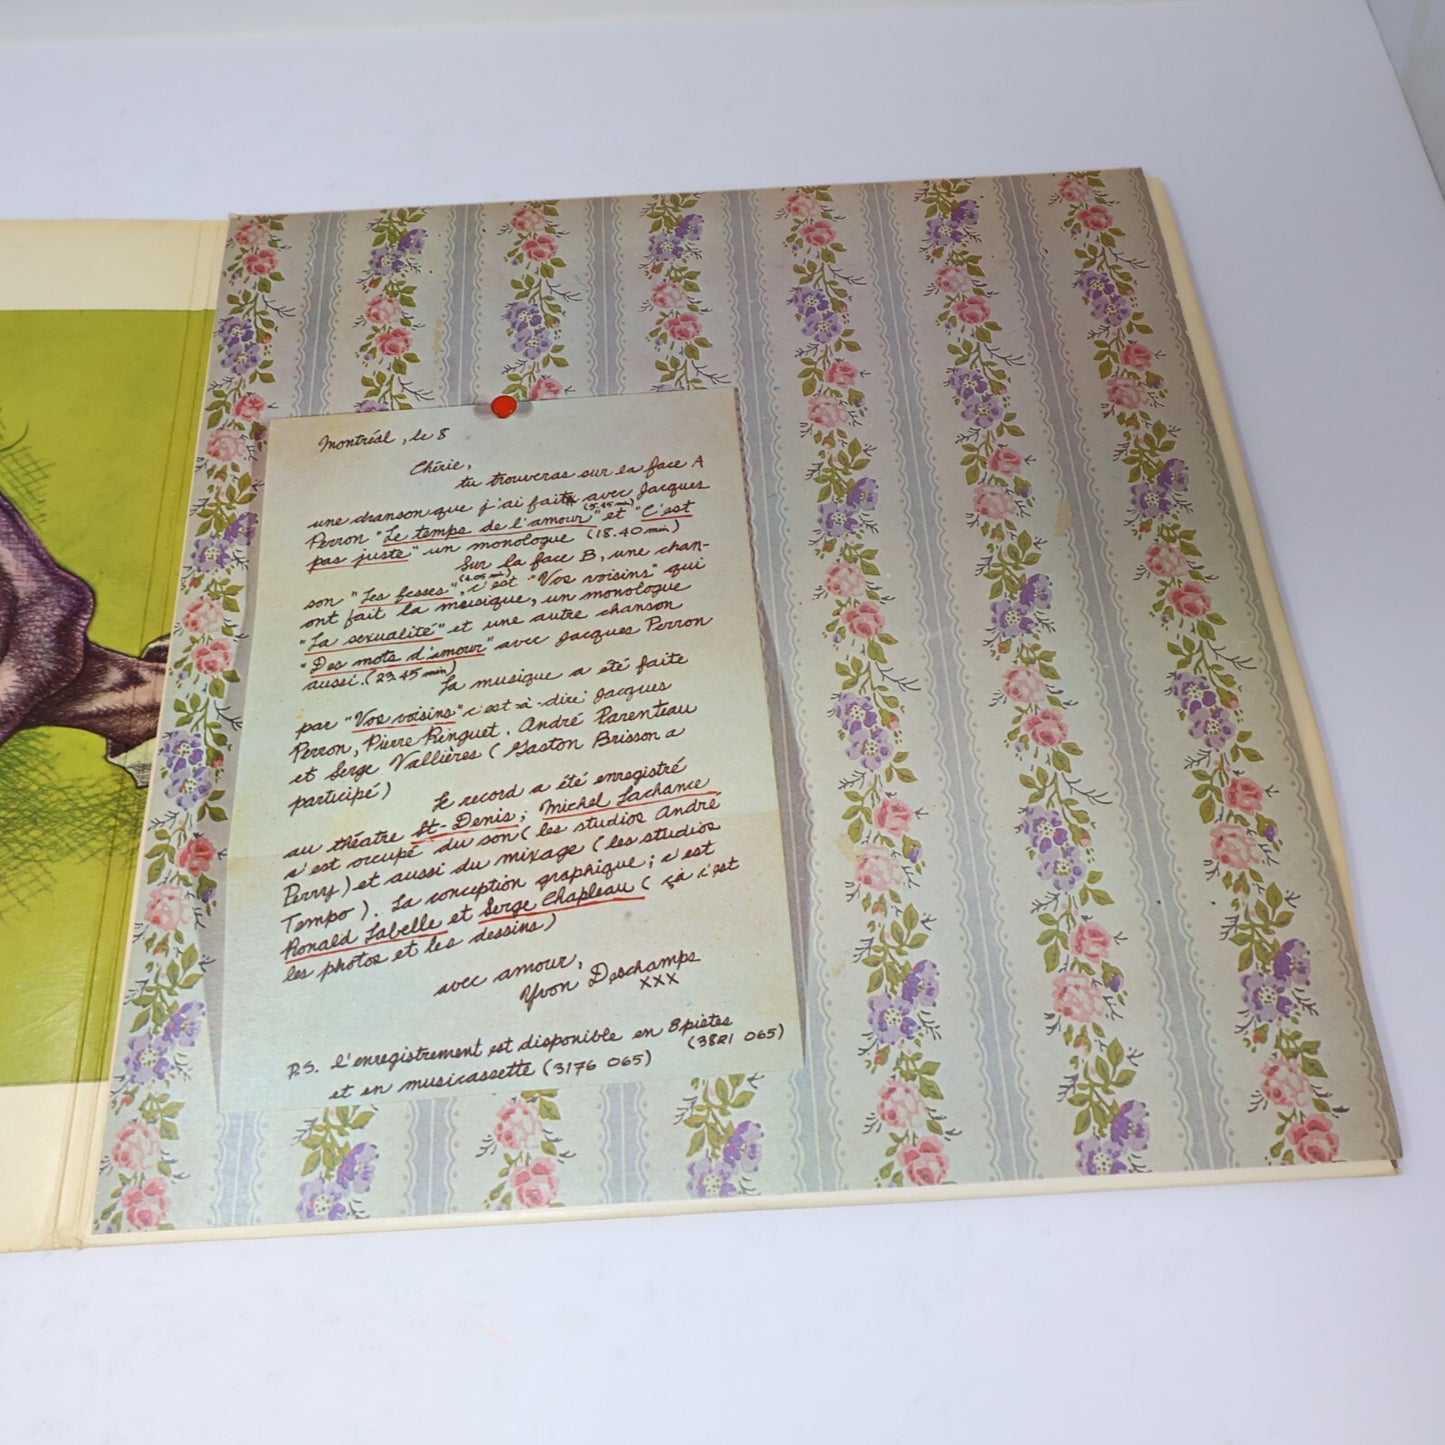 Montréal, le 8
Chérie,
tu trouveras sur la face A
une chanson que j'ai faite avec Jacques
(5.45 min)
Perron "Le temps de l'amour" et "C'est
pas juste" un monologue (18.40 min)
Sur la face B, une chan-
(4.05 min)
son "Les fesses", c'est "Vos voisins" qui
ont fait la musique, un monologue
"La sexualité" et une autre chanson
"Des mots d'amour" avec Jacques Perron
aussi. (23.45 min)
La musique a été faite
par "Vos voisins" c'est-à-dire; Jacques
Perron, Pierre Ringuet, André Parenteau
et Serge Vallières (Gaston Brisson a
participé)
Le record a été enregistré
au théatre St-Denis; Michel Lachance
s'est occupé du son (les studios André
Perry) et aussi du mixage (les studios
Tempo). La conception graphique; c'est
Ronald Labelle et Serge Chapleau (çà c'est
les photos et les dessins)
avec amour,
Yvon Deschamps
xxx
P.S. l'enregistrement est disponible en 8 pistes
(3821 065)
et en musicassette (3176 065)